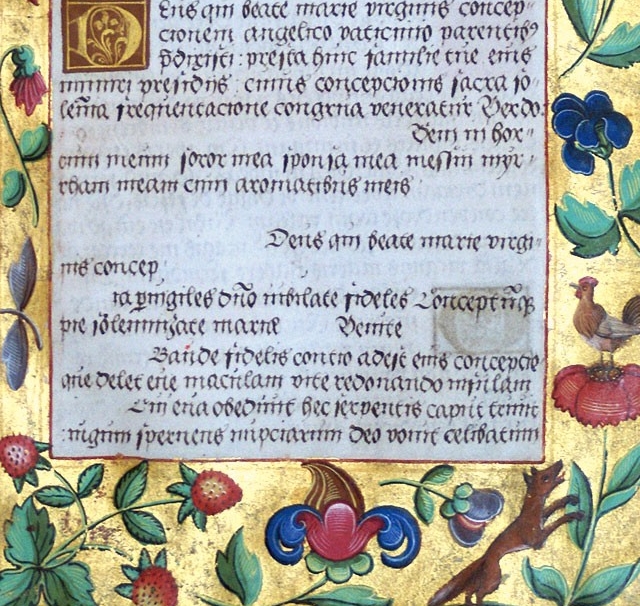 Deus qui beate marie virginis concep-
cionem angelico vaticinio parentibꝯ
p̄dixisti: presta huic familie tue eius
presidijs: cuius concepcionis sacra so-
lēnia frequentacione congrua veneratur Per do:
Veni in hor-
tum meum soror mea sponsa mea messui myr-
rham meam cum aromatibus meis
Deus qui beate marie virgi-
nis concep
ꝑuigiles dn̄o iubilate fideles Conceptūqꝫ
pie solemnizate mariæ Venite
Gaude fidelis concio adest eius conceptio
que delet eue maculam vite redonando
Cui eua obediuit hec serpentis caput
spernens nupciarum deo vouit celibatum